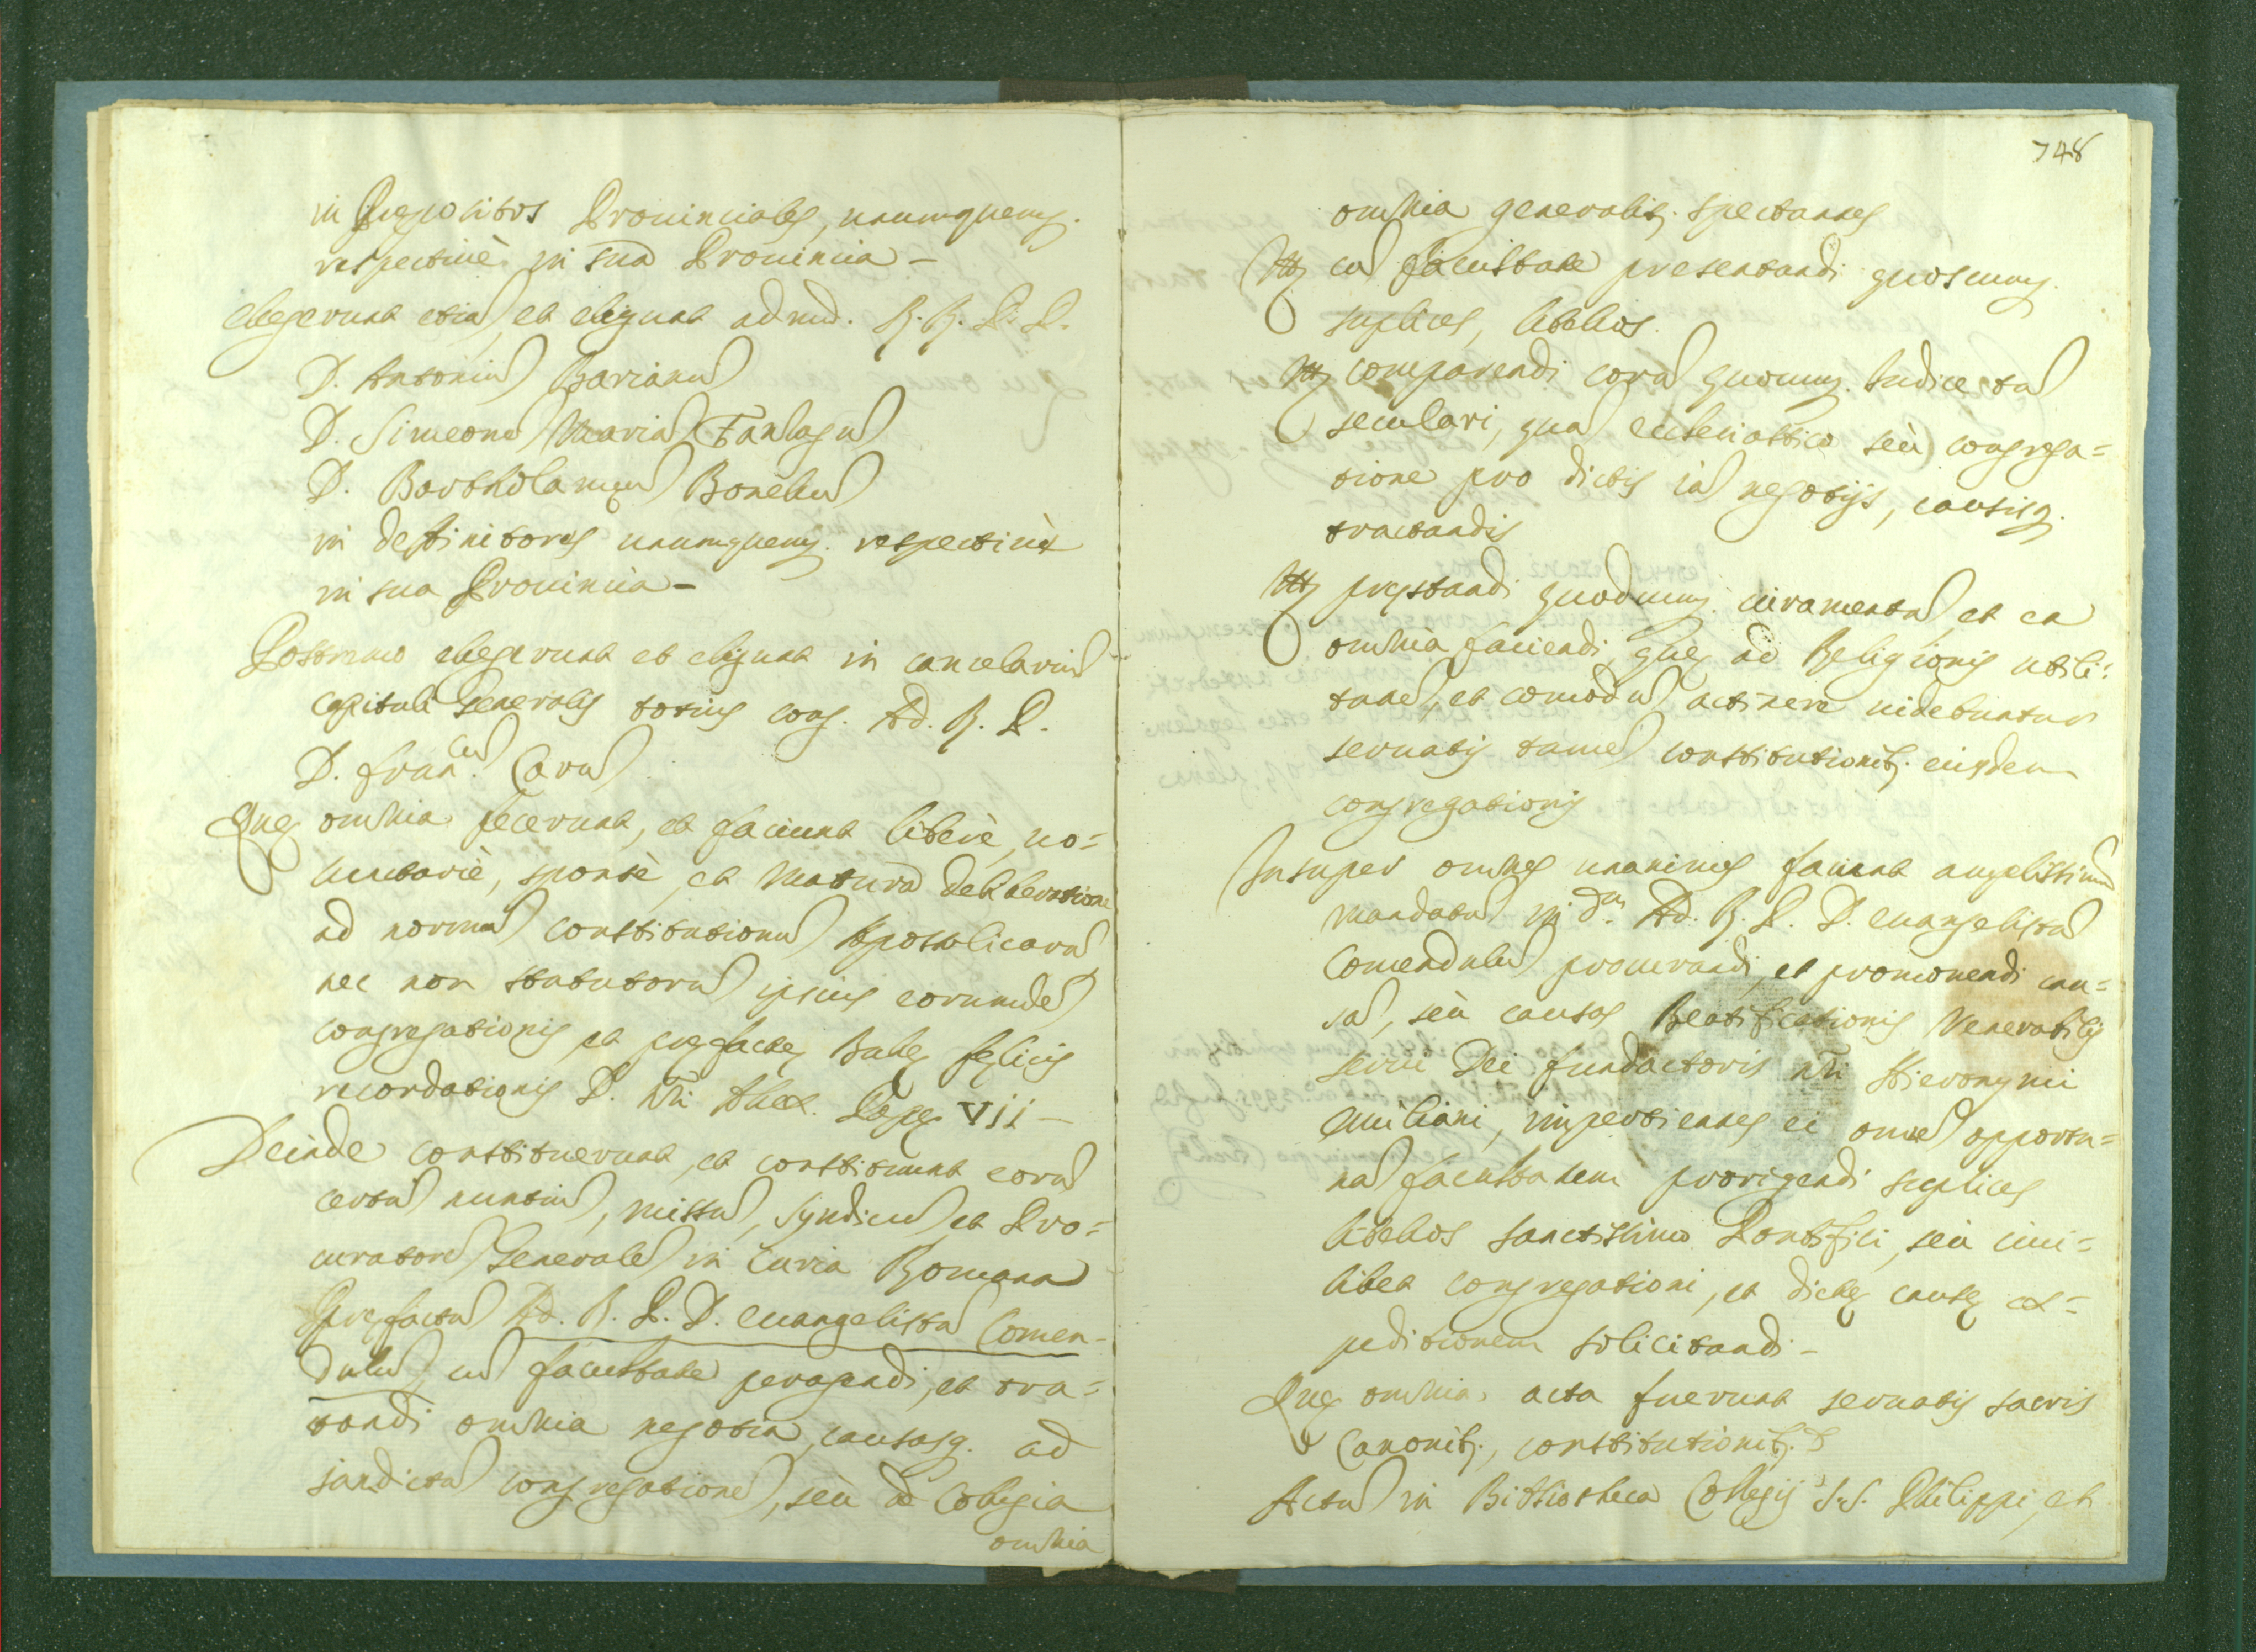 in Prępositos Prouinciales, unumquemq.
respectiuè in sua Prouincia –
elegerunt etiā, et eligunt admd. R. R. P. P.
D. Antoniū Barianū
D. Simeonē Mariā Fanlagū
D. Bartholamęū Bonellū
in deffinitores unumquemq. respectiuè
in sua Prouincia –
Postremo elegerunt et eligunt in cancelariū
capituli Generalis totius cong. Ad. R. P.
D. Fran.cū Carū
Quę omnia fecerunt, et faciunt liberè, uo=
luntariè, spontè, et matura deliberatione
ad normā constitutionū Apostolicarū
nec non statutorū ipsius eorumdē
congregationis et pręfactę Bullę felicis
recordationis D. Nri Alex. Papę VII –
Deinde constituerunt, et constituunt eorū
certū nuntiū, missū, syndicū, et Pro=
curatorē Generalē in Curia Romana
Pręfactū Ad. R. P. D. Euangelistā Comen-
dulū cū facultate peragendi, et tra=
tandi omnia negotia, causasq. ad
iandictā congregationē, seù ad Collegia
omnia
748
omnia generalit. spectantes
Itē cū facultate presentandi quoscunq.
suplices libellos.
Itē comparendi corā quocunq. Iudice tā
seculari, quā ecclesiastico seù congrega=
tione pro dictis iā negotijs, causisq.
tractandis
Itē pręstandi quodcunq. iuramentū, et ea
omnia faciendi, quę ad Religionis utili=
tatē, et comodū actinere uidebuntur
seruatis tamē constitutionib. eiusdem
congregationis
Insuper omnes unanimes faciunt amplissimū
mandatū in dm Ad. R. P. D. Euangelistā
Comendulū procurandi, et promouendi cau=
sā, seù causas Beatificationis Venerabilis
serui Dei fundactoris nri Hieronymi
Emiliani, impertientes ei omnē opportu=
nā facultatem porrigendi suplices
libellos sanctissimo Pontifici, seù cui=
libet congregationi, et dictę causę ex=
peditionem solicitandi –
Quę omnia acta fuerunt seruatis sacris
Canonib., constitutionib.
Actū in Bibliotheca Collegij S.S. Philippi, et